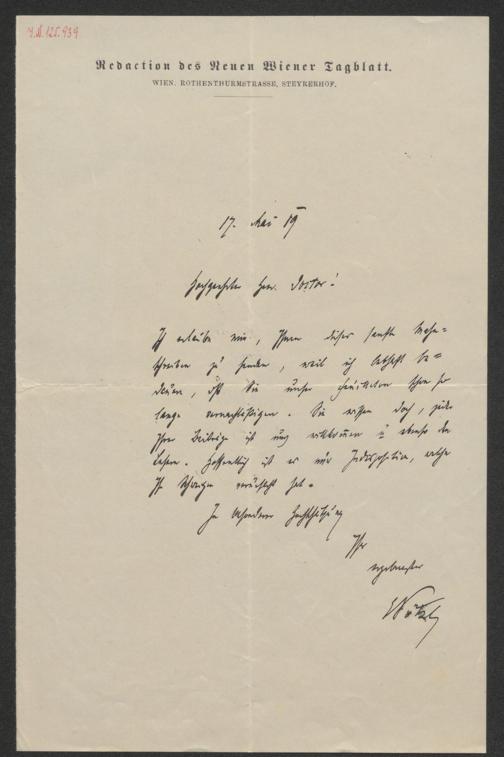 J.N. 125.939
Redaction des Neuen Wiener Tagblatt.
WIEN, ROTHENTHURMSTRASSE, STEYRERHOF.
17. Mai 89
Hochgeehrter Herr Doctor!
Ich erlaube mir, Ihnen diese sanfte Mahn=
schreiben zu senden, weil ich lebhaft be=
daure, daß Sie unser Feuilleton schon so
lange vernachlässigen. Sie wissen doch, jeder
Ihrer Beiträge ist uns willkommen u ebenso den
Lesern. Hoffentlich ist es nur Indisposition, welche
Ihr Schweigen verursacht hat.
In besonderer Hochschätzung
Ihr
ergebenster